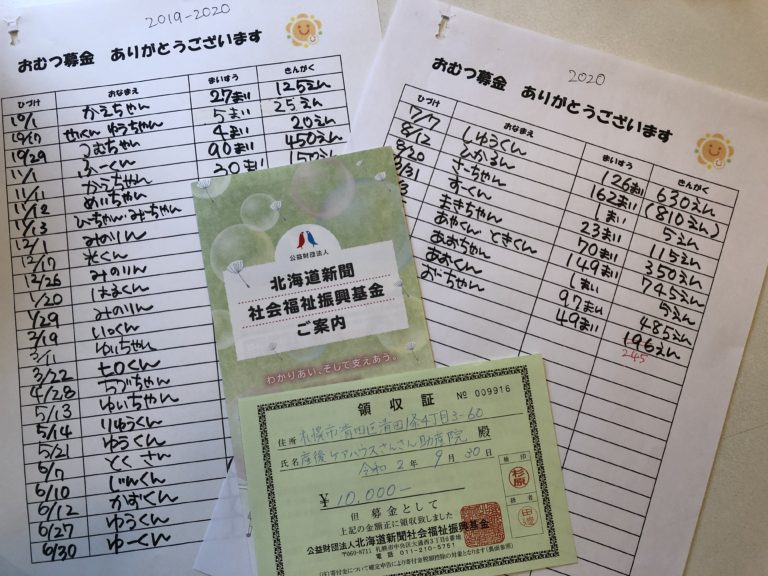 2019-2020
おむつ募金 ありがとうございます
ひづけ おなまえ まいすう きんがく
10/1 かえちゃん 27まい 125えん
10/17 ゆうちゃん 5まい 25えん
10/29 つむちゃん 4まい 20えん
11/1 ふーくん 90まい 450えん
11/11 かえちゃん 30まい 150えん
11/12 めいちゃん
11/13 ひーちゃん・みーちゃん
12/1 みのりん
12/17 光くん
12/26 みのりん
1/20 はるくん
1/29 みのりん
3/19 いっくん
3/11 ゆいちゃん
3/22
4/28 つづちゃん
5/13 ゆいちゃん
5/14 りゅうくん
5/21 ゆうくん
5/7 とくさん
6/10 じんくん
6/12 かずくん
6/27 ゆうくん
6/30 ゆーくん
2020
おむつ募金 ありがとうございます
ひづけ おなまえ まいすう きんがく
7/7 しゅうくん 126まい 630えん
8/12 ひかるん 162まい (810えん)
8/20 さーちゃん 1まい 5えん
8/31 すーくん 23まい 115えん
まきちゃん 70まい 350えん
あやくん ときくん 149まい 745えん
あおちゃん 1まい 5えん
あむくん 97まい 485えん
おーちゃん 49まい 196えん
245
公益財団法人
北海道新聞
社会福祉振興基金
ご案内
わかりあい、そして支えあう。
領収証 № 009916
住所 札幌市清田区清田1条4丁目3-60
氏名 産後ケアハウスさんさん助産院 殿
令和2年9月30日
¥10,000-
但 募金として
上記の金額正に領収致しました
公益財団法人 北海道新聞社会福祉振興基金
〒060-8711 札幌市中央区大通西3丁目6番地
電話 011-210-5751
検印
杉原